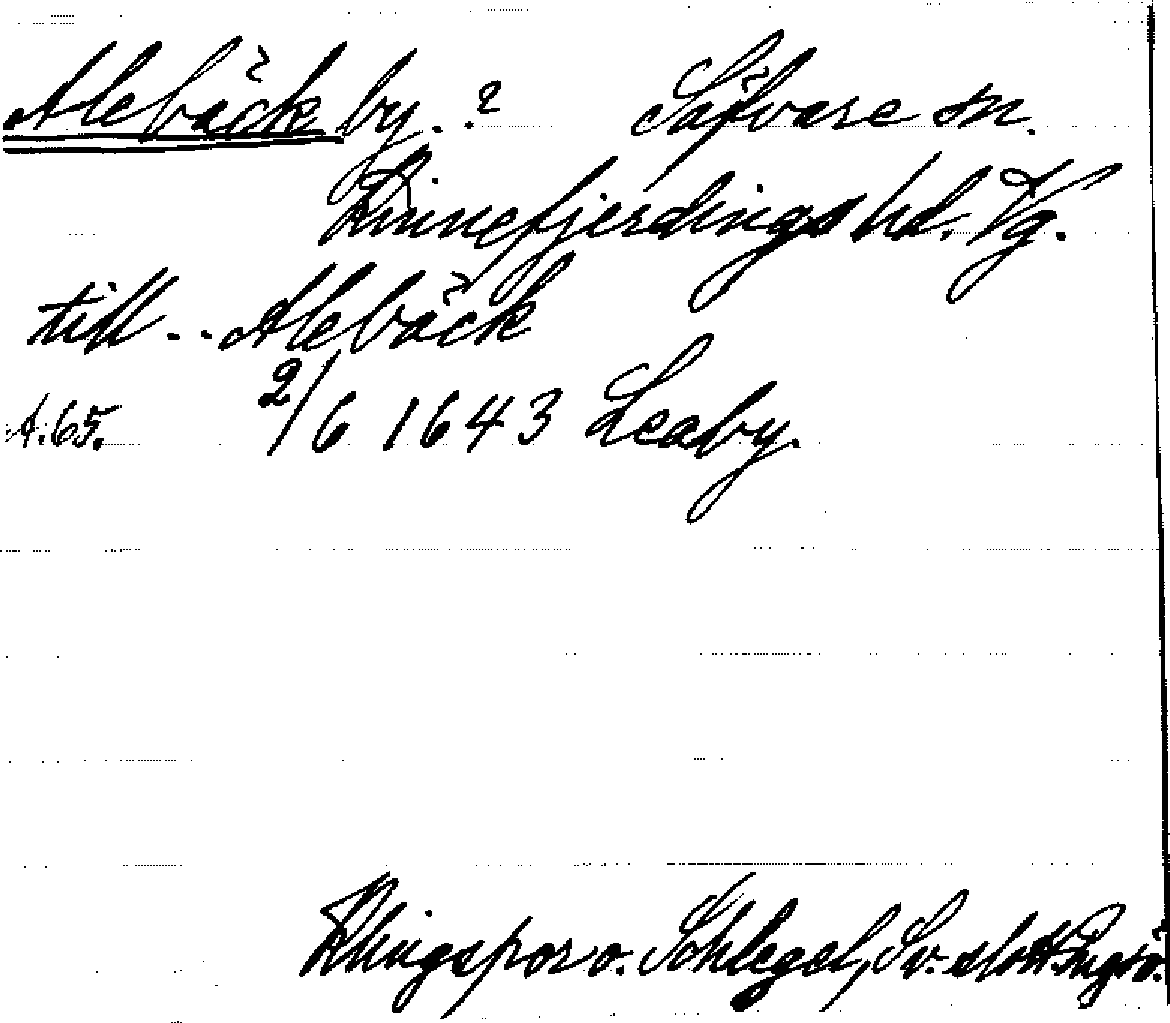 Alebäck by. ? Säfvare sn.
Kinnefjerdings hd. Vg.
till .. Alebäck
A. 65. 2/6 1643 Leaby.
Klingspor o. Schlegel, Sv. slott. Engsö.